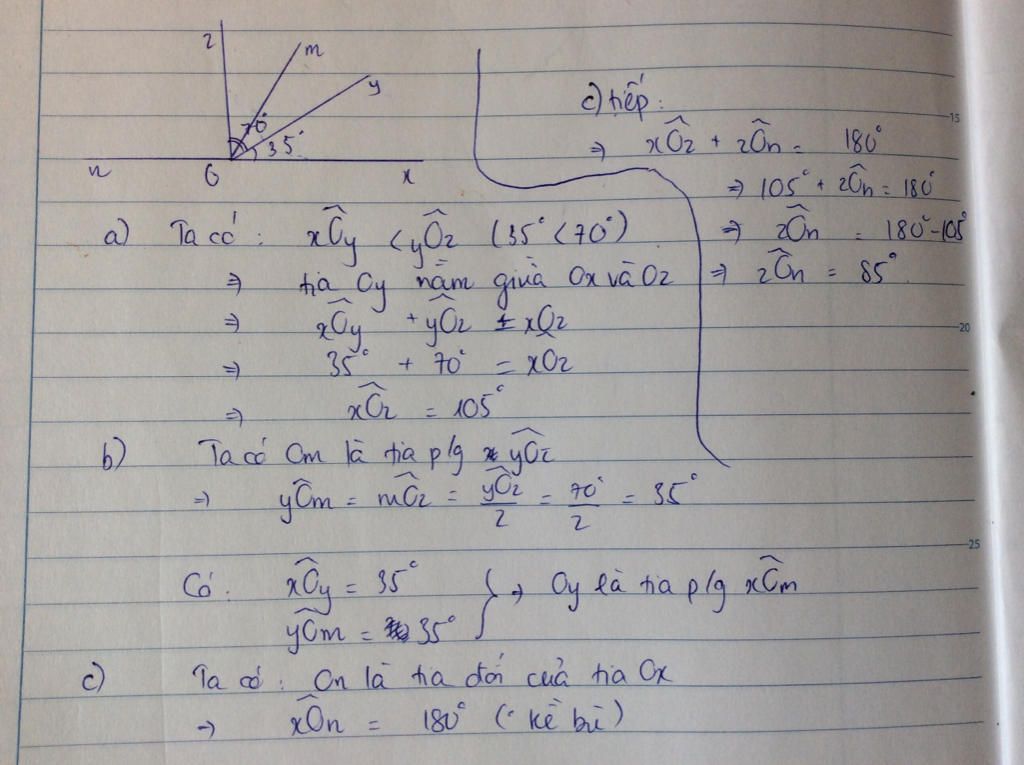 z
m
y
70°
35°
n
O
x
a) Ta có: xÔy < yÔz (35° < 70°)
⇒ tia Oy nằm giữa Ox và Oz
⇒ xÔy + yÔz = xÔz
⇒ 35° + 70° = xÔz
⇒ xÔz = 105°
b) Ta có Om là tia p/g yÔz
⇒ yÔm = mÔz = yÔz/2 = 70°/2 = 35°
Có: xÔy = 35°
yÔm = 35°
} ⇒ Oy là tia p/g xÔm
c) Ta có: On là tia đối của tia Ox
⇒ xÔn = 180° (kề bù)
c) tiếp:
⇒ xÔz + zÔn = 180°
⇒ 105° + zÔn = 180°
⇒ zÔn = 180° - 105°
⇒ zÔn = 85°
15
20
25